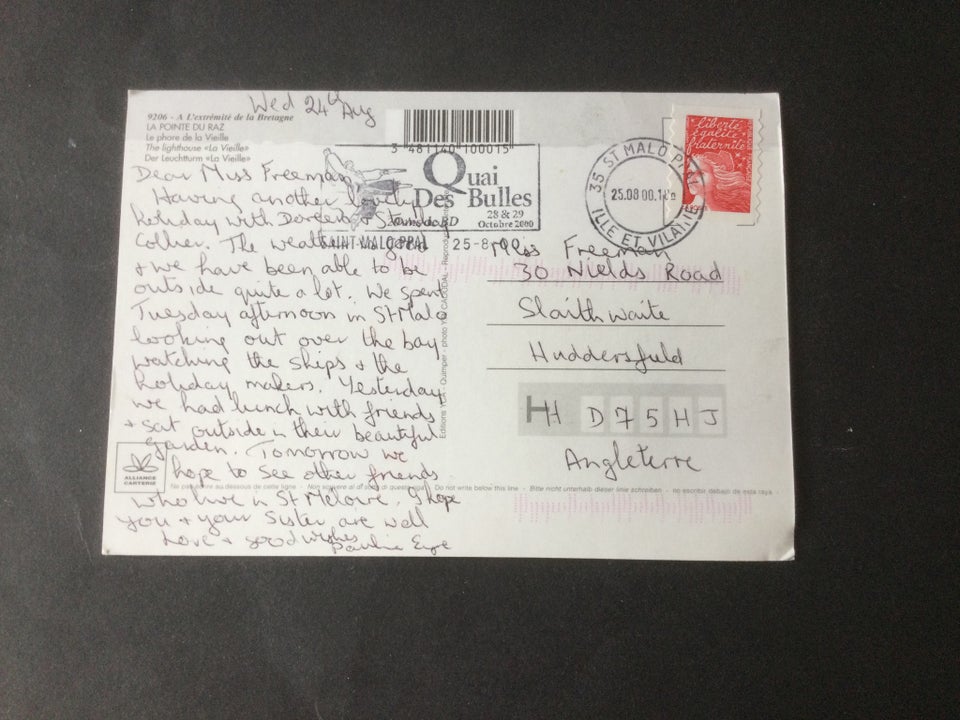 Wed 24th Aug
9206 - A L'extrémité de la Bretagne
LA POINTE DU RAZ
Le phare de la Vieille
The lighthouse «La Vieille»
Der Leuchtturm «La Vieille»
3 481140 100015
Quai
Des Bulles
28 & 29
Octobre 2000
SAINT-MALO PPAL 25-8-00
35 ST MALO PPAL
25.08 00
ILLE ET VILAINE
liberté
égalité
fraternité
Dear Miss Freeman
Having another lovely
holiday with Doreen & Stan
Collier. The weather is good
& we have been able to be
outside quite a lot. We spent
Tuesday afternoon in St Malo
looking out over the bay
watching the ships & the
holiday makers. Yesterday
we had lunch with friends
& sat outside in their beautiful
garden. Tomorrow we
hope to see other friends
who live in St Meloire. I hope
you & your Sister are well
Love & good wishes
Pauline Eyre
Miss Freeman
30 Nields Road
Slaithwaite
Huddersfield
HD75HJ
Angleterre
ALLIANCE
CARTERIE
Ne pas écrire au dessous de cette ligne - Non scrivere al di sotto di questa riga - Do not write below this line - Bitte nicht unterhalb dieser linie schreiben - no escribir debajo de esta raya